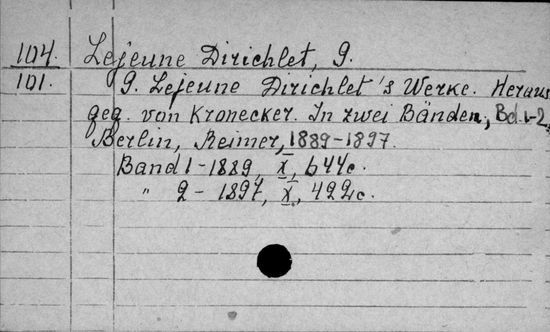 104. Lejeune Dirichlet, G.
101. G. Lejeune Dirichlet's Werke. Heraus
geg. von Kronecker. In zwei Bänden, Bd. 1-2,
Berlin, Reimer, 1889-1897.
Band 1-1889, X, 644c.
" 2-1897, X, 422c.